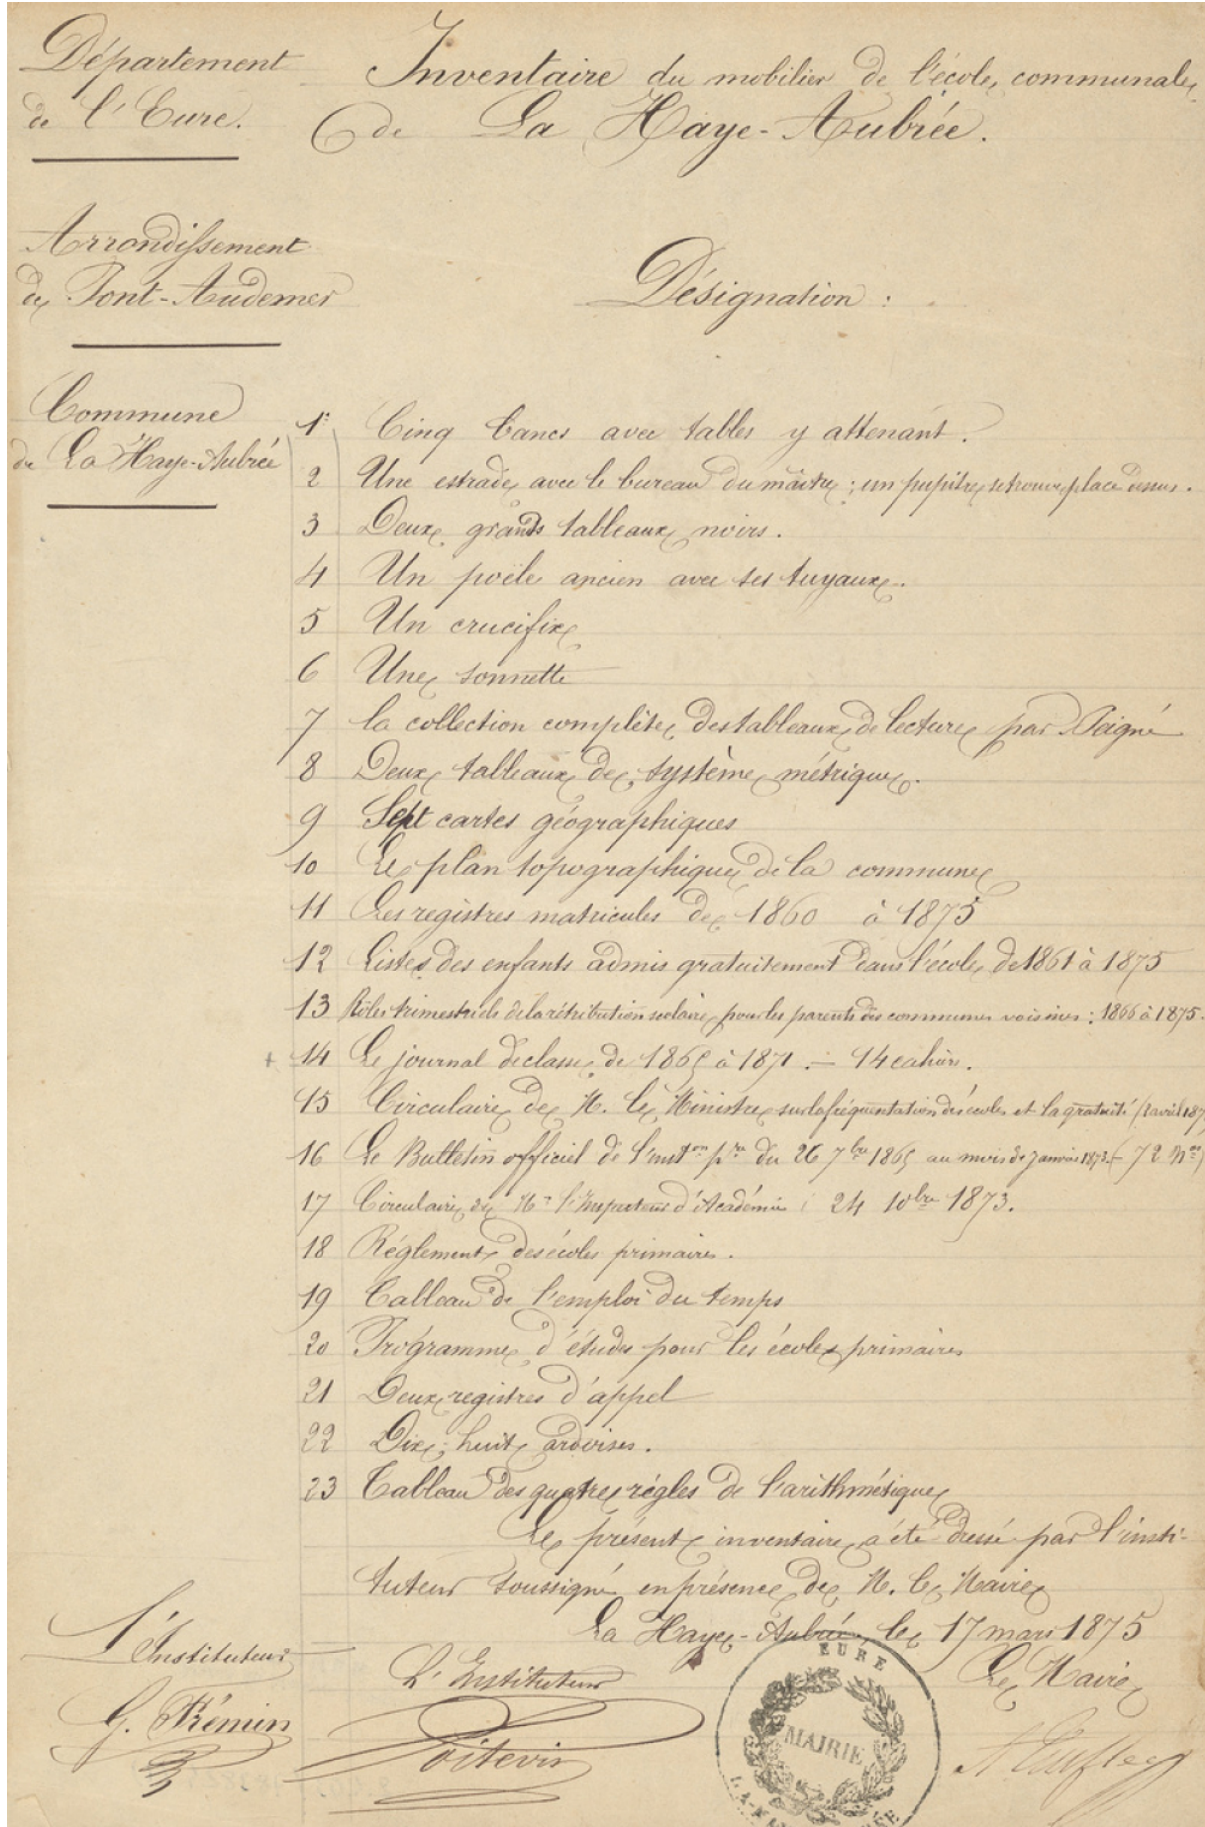 Département
de l'Eure.
Inventaire du mobilier de l'école communale
de La Haye-Aubrée.
Arrondissement
de Pont-Audemer
Désignation :
Commune
de La Haye-Aubrée
1° Cinq bancs avec tables y attenant.
2 Une estrade avec le bureau du maître ; un pupitre se trouve placé dessus.
3 Deux grands tableaux noirs.
4 Un poële ancien avec ses tuyaux.
5 Un crucifix
6 Une sonnette
7 la collection complète des tableaux de lecture par Peigné
8 Deux tableaux de système métrique.
9 Sept cartes géographiques
10 Le plan topographique de la commune
11 Les registres matricules de 1860 à 1875
12 Listes des enfants admis gratuitement dans l'école de 1861 à 1875
13 Rôles trimestriels de la rétribution scolaire pour les parents des communes voisines : 1866 à 1875.
14 Le journal de classe de 1865 à 1871 .— 14 cahiers.
15 Circulaire de M. le Ministre sur la fréquentation des écoles et la gratuité (2 avril 187
16 Le Bulletin officiel de l'inston pre du 26 7bre 1865 au mois de janvier 1873 (72 Nos)
17 Circulaire de Mr l'Inspecteur d'Académie : 24 10bre 1873.
18 Réglement des écoles primaires.
19 Tableau de l'emploi du temps
20 Programme d'études pour les écoles primaires
21 Deux registres d'appel
22 Dix-huit ardoises.
23 Tableau des quatre règles de l'arithmétique
Le présent inventaire a été dressé par l'insti-
tuteur soussigné en présence de M. le Maire
La Haye-Aubrée, le 17 mars 1875
L'Instituteur
L'Instituteur
Le Maire
G. Frémin
Poitevin
EURE
MAIRIE